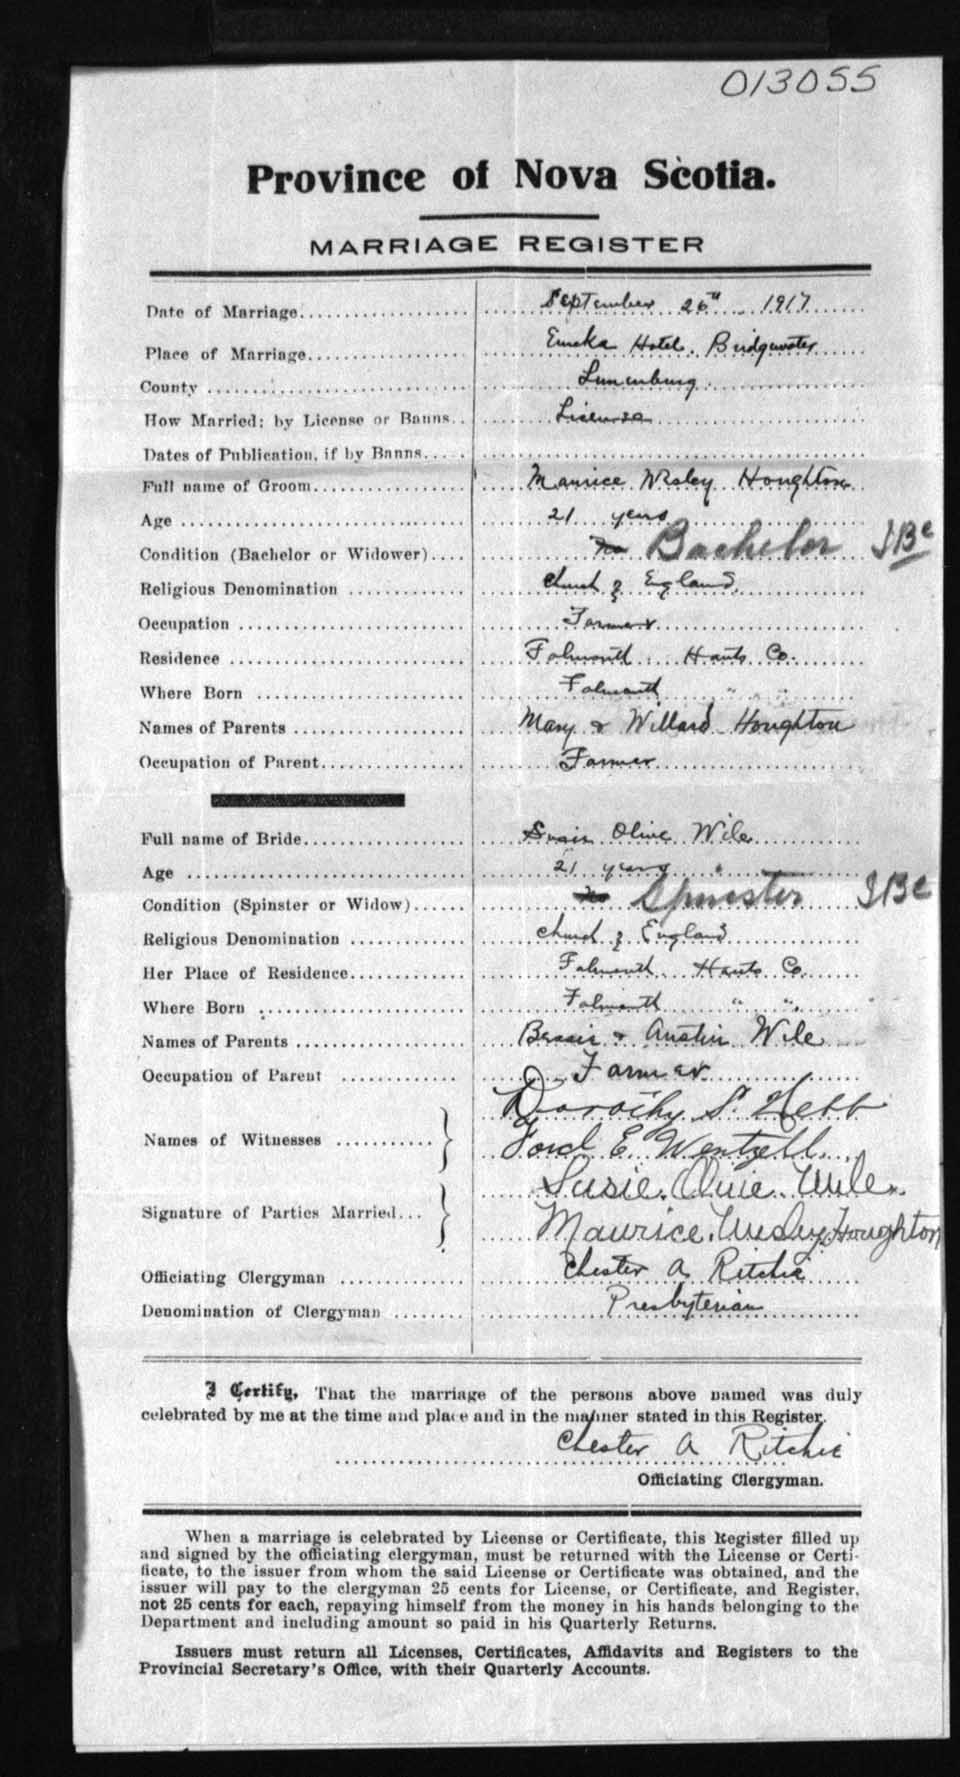 013055
Province of Nova Scotia.
MARRIAGE REGISTER
Date of Marriage September 26th 1917
Place of Marriage Eureka Hotel. Bridgewater
County Lunenburg
How Married; by License or Banns License
Dates of Publication, if by Banns
Full name of Groom Maurice Wesley Houghton
Age 21 years
Condition (Bachelor or Widower) No Bachelor
Religious Denomination Church of England
Occupation Farmer
Residence Falmouth Hants Co.
Where Born Falmouth " "
Names of Parents Mary & Willard Houghton
Occupation of Parent Farmer
Full name of Bride Susie Olive Wile
Age 21 years
Condition (Spinster or Widow) No Spinster
Religious Denomination Church of England
Her Place of Residence Falmouth Hants Co
Where Born Falmouth " "
Names of Parents Bessie & Austin Wile
Occupation of Parent Farmer
Dorothy S. Hebb
Names of Witnesses
Ford E. Wentzell
Susie Olive Wile
Signature of Parties Married
Maurice Wesley Houghton
Officiating Clergyman Chester A Ritchie
Denomination of Clergyman Presbyterian
I Certify, That the marriage of the persons above named was duly
celebrated by me at the time and place and in the manner stated in this Register.
Chester A Ritchie
Officiating Clergyman.
When a marriage is celebrated by License or Certificate, this Register filled up
and signed by the officiating clergyman, must be returned with the License or Certi-
ficate, to the issuer from whom the said License or Certificate was obtained, and the
issuer will pay to the clergyman 25 cents for License, or Certificate, and Register,
not 25 cents for each, repaying himself from the money in his hands belonging to the
Department and including amount so paid in his Quarterly Returns.
Issuers must return all Licenses, Certificates, Affidavits and Registers to the
Provincial Secretary's Office, with their Quarterly Accounts.